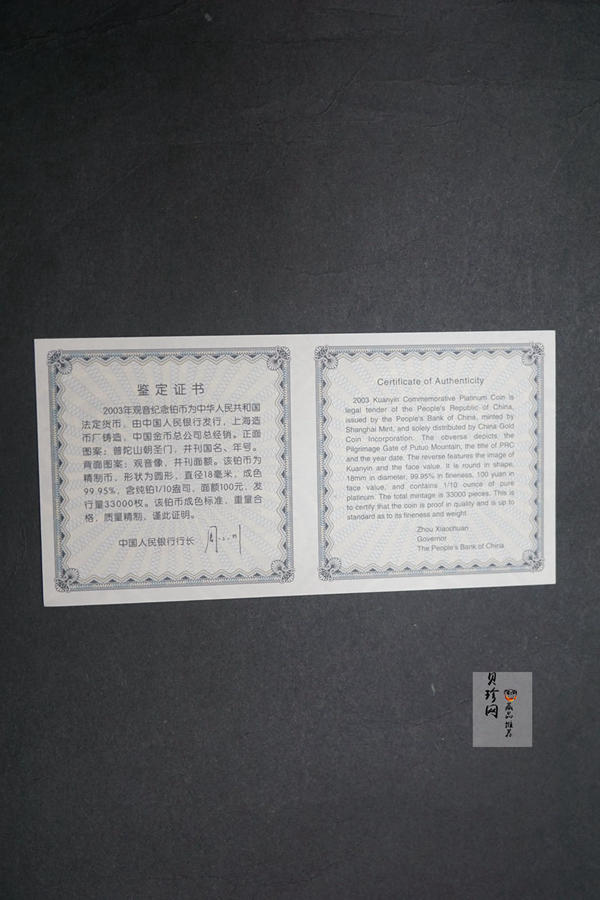 鉴定证书
2003年观音纪念铂币为中华人民共和国
法定货币，由中国人民银行发行，上海造
币厂铸造，中国金币总公司总经销。正面
图案：普陀山朝圣门，并刊国名、年号。
背面图案：观音像，并刊面额。该铂币为
精制币，形状为圆形，直径18毫米，成色
99.95%，含纯铂1/10盎司，面额100元，发
行量33000枚。该铂币成色标准，重量合
格，质量精制，谨此证明。
中国人民银行行长
Certificate of Authenticity
2003 Kuanyin Commemorative Platinum Coin is
legal tender of the People's Republic of China,
issued by the People's Bank of China, minted by
Shanghai Mint, and solely distributed by China Gold
Coin Incorporation. The obverse depicts the
Pilgrimage Gate of Putuo Mountain, the title of PRC
and the year date. The reverse features the image of
Kuanyin and the face value. It is round in shape,
18mm in diameter, 99.95% in fineness, 100 yuan in
face value, and contains 1/10 ounce of pure
platinum. The total mintage is 33000 pieces. This is
to certify that the coin is proof in quality and is up to
standard as to its fineness and weight.
Zhou Xiaochuan
Governor
The People's Bank of China
贝珍网
藏品推荐